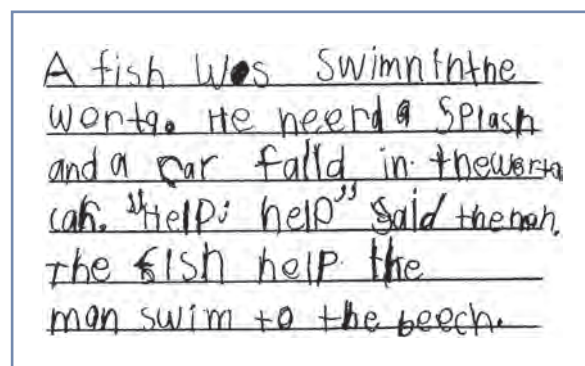 A fish was swimn inthe
worta. He heerd a splash
and a car falld in thewerta
cah. "Help! help" said theman.
The fish help the
man swim to the beech.